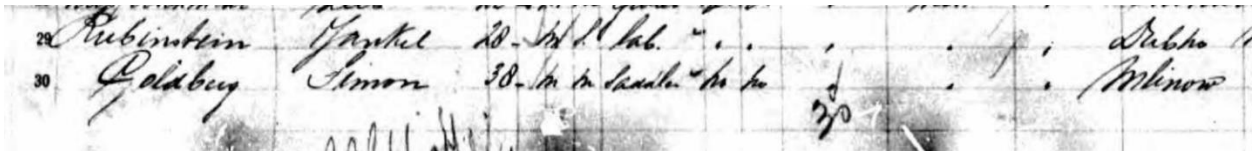 29 Rubinstein Yankel 28 - m s. lab. " . . , . , Dubno
30 Goldberg Simon 38 - m m Saddler " no no . . Mlinow
30